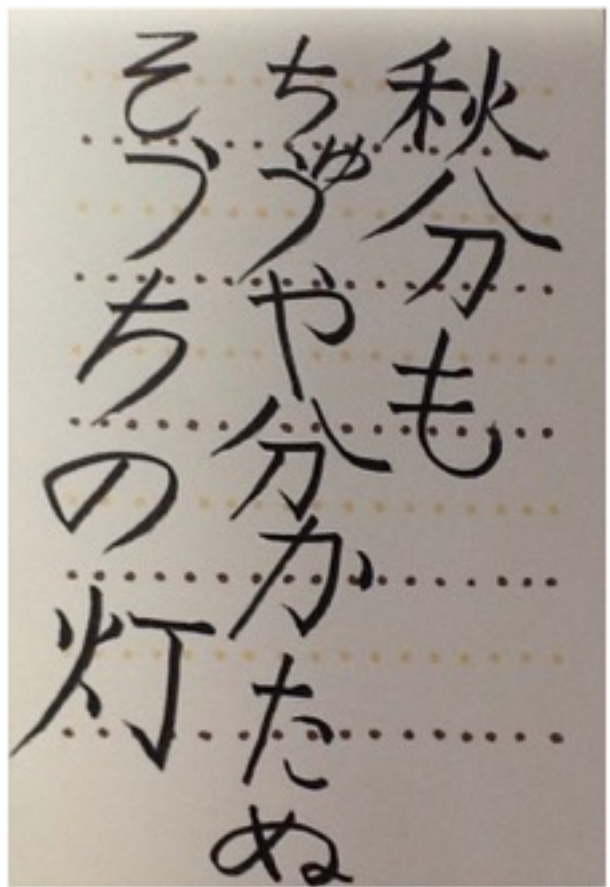 秋分も
ちゅうや分かたぬ
そうちの灯